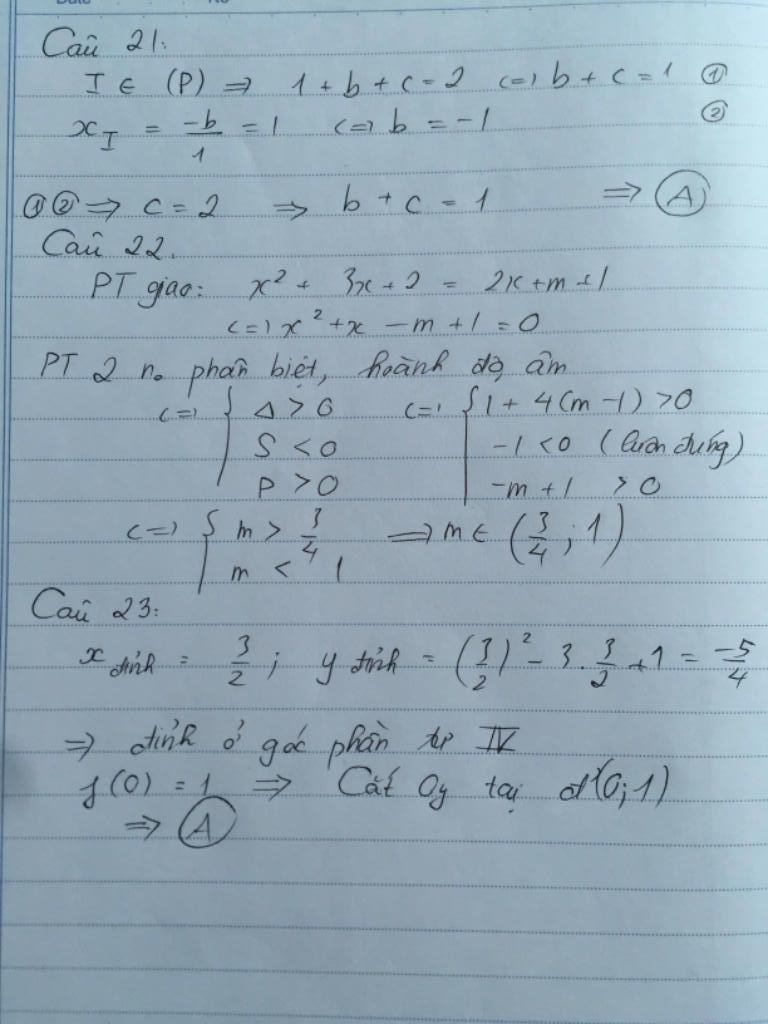 Câu 21:
I ∈ (P) => 1 + b + c = 2 <=> b + c = 1 ①
x_I = -b/1 = 1 <=> b = -1 ②
①② => c = 2 => b + c = 1 => Ⓐ
Câu 22.
PT giao: x² + 3x + 2 = 2x + m + 1
<=> x² + x - m + 1 = 0
PT 2 n. phân biệt, hoành độ âm
<=> { Δ > 0 <=> { 1 + 4(m - 1) > 0
S < 0 -1 < 0 (luôn đúng)
P > 0 -m + 1 > 0
<=> { m > 3/4 => m ∈ (3/4 ; 1)
m < 1
Câu 23:
x đỉnh = 3/2 ; y đỉnh = (3/2)² - 3 . 3/2 + 1 = -5/4
=> đỉnh ở góc phần tư IV
f(0) = 1 => Cắt Oy tại đ' (0;1)
=> Ⓐ